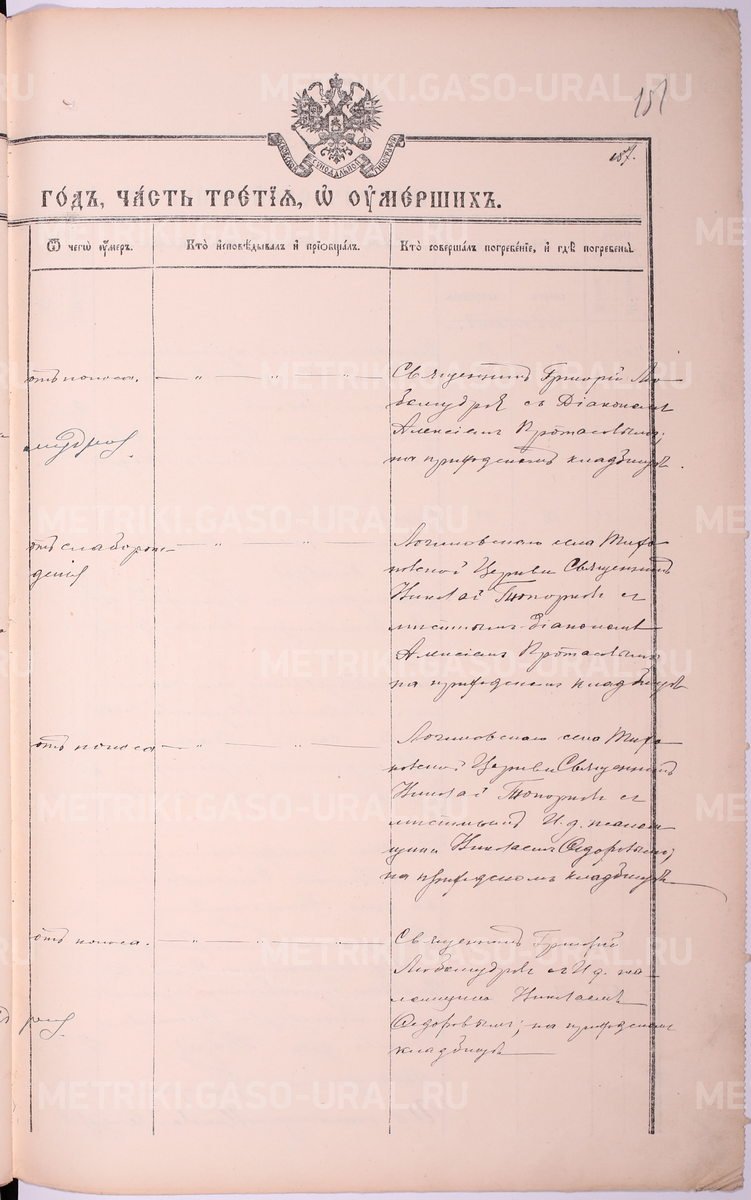 METRIKI.GASO-URAL.RU
181
187.
МОСКОВСКОЙ СѴНОДАЛЬНОЙ ТИПОГРАФІИ
ГО́ДЪ, ЧА́СТЬ ТРЕ́ТЇѦ, Ѡ҆ ОУ҆МЕ́РШИХЪ.
Ѿ чегѡ̀ оу҆́меръ.
Кто̀ и҆сповѣ́дывалъ и҆ прїѡбща́лъ.
Кто̀ соверша́лъ погребе́нїе, и҆ гдѣ̀ погребены̀.
отъ поноса. — „ — „ — „ —
Священникъ Григорій Лю-
бомудровъ съ Діакономъ
Алексіемъ Протасовымъ;
на приходскомъ кладбищѣ.
отъ слаборож-
денія
Логиновскаго села Тихо-
новской Церкви Священникъ
Николай Топорковъ съ
мѣстнымъ діакономъ
Алексіемъ Протасовымъ
на приходскомъ кладбищѣ
отъ поноса — „ — „ —
Логиновскаго села Тихо-
новской Церкви Священникъ
Николай Топорковъ съ
мѣстнымъ И. д. псалом-
щика Николаемъ Ѳедоровымъ;
на приходскомъ кладбищѣ
отъ поноса. — „ — „ — „ —
Священникъ Григорій
Любомудровъ съ И. д. пса-
ломщика Николаемъ
Ѳедоровымъ; на приходскомъ
кладбищѣ